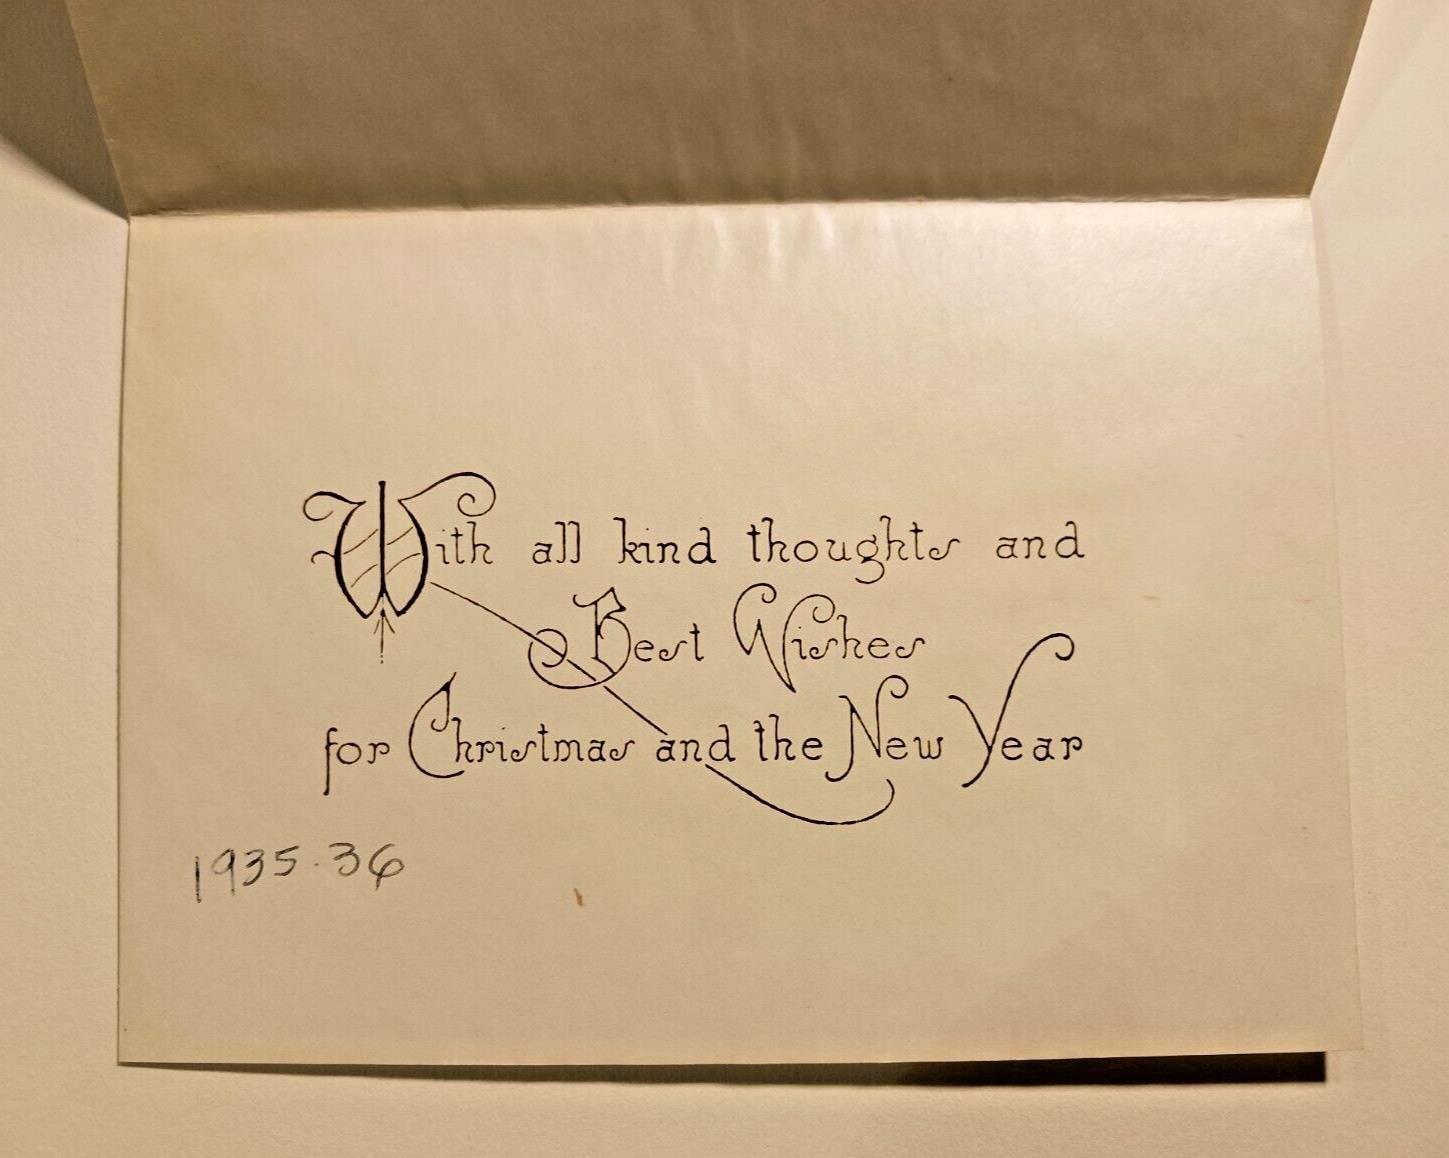 With all kind thoughts and
Best Wishes
for Christmas and the New Year
1935.36